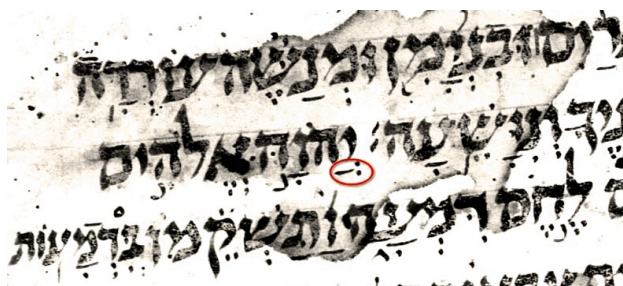 רַיִם וּבִנְיָמִן וּמְנַשֶּׁה עוֹרְרָה
נֶיךָ וְנִוָּשֵׁעָה׃ יְהוָה אֱלֹהִים
ם לֶחֶם דִּמְעָה וַתַּשְׁקֵמוֹ בִּדְמָעוֹת